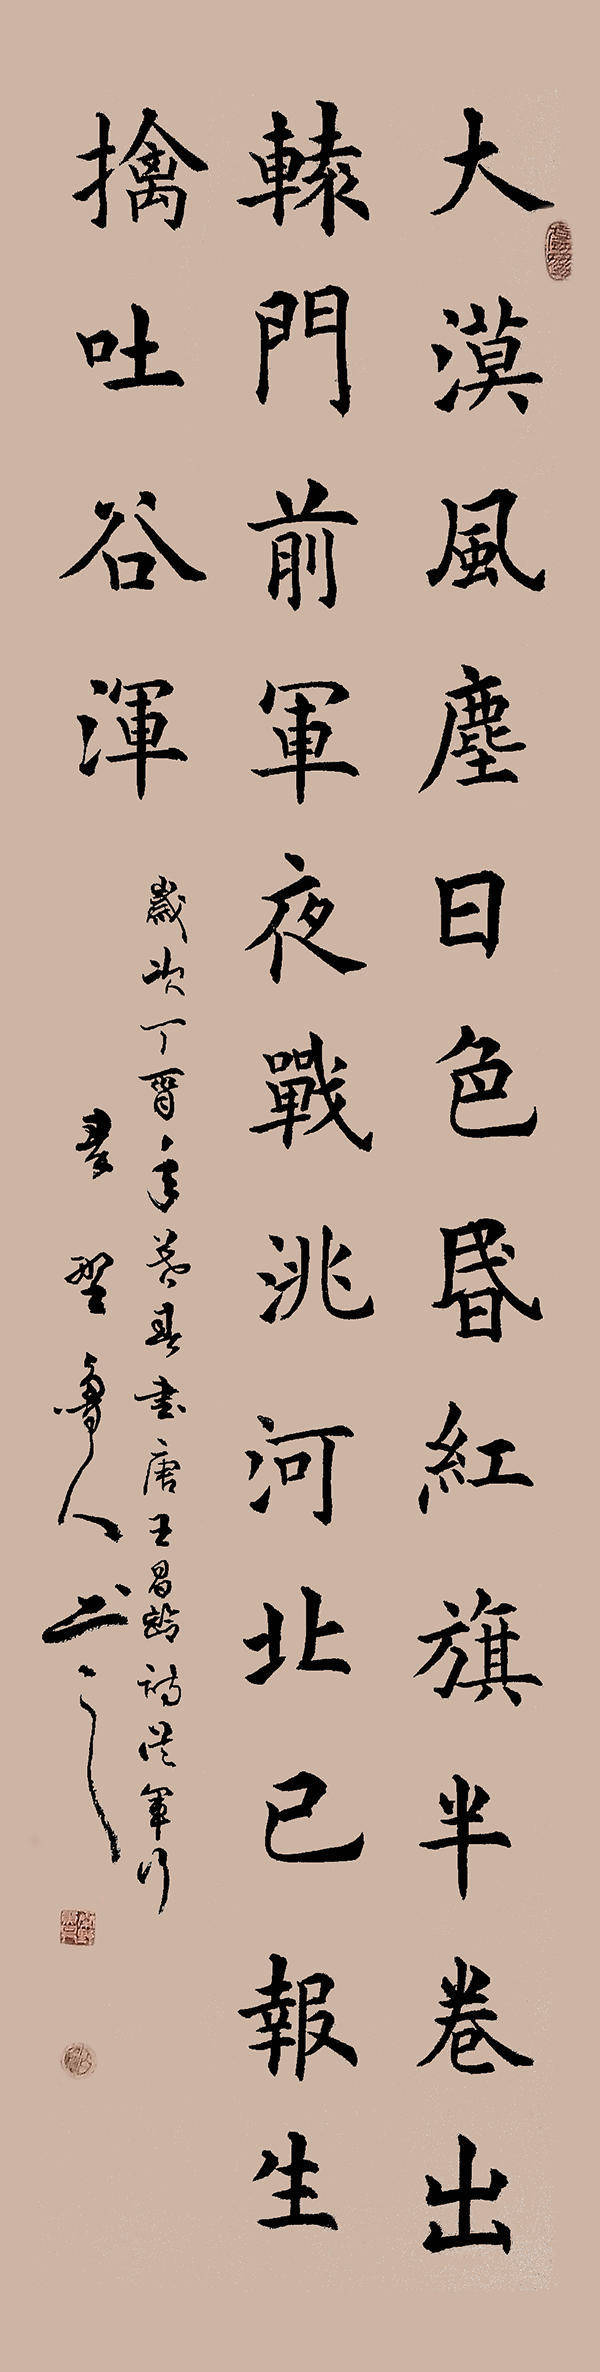 大漠風塵日色昏紅旗半卷出
轅門前軍夜戰洮河北已報生
擒吐谷渾
歲次丁酉年暮春書唐王昌齡詩從軍行
野魯人書之